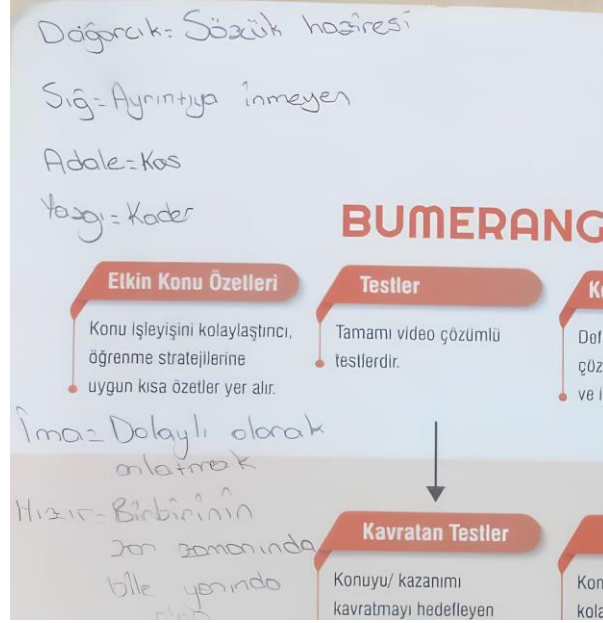 Dağarcık= Sözcük haziresi
Sığ= Ayrıntıya inmeyen
Adale= Kas
Yazgı= Kader
BUMERANG
Etkin Konu Özetleri
Konu işleyişini kolaylaştırıcı,
öğrenme stratejilerine
uygun kısa özetler yer alır.
Testler
Tamamı video çözümlü
testlerdir.
İma= Dolaylı olarak
anlatmak
Hızır= Birbirinin
zor zamanında
bile yanında
Kavratan Testler
Konuyu/ kazanımı
kavratmayı hedefleyen